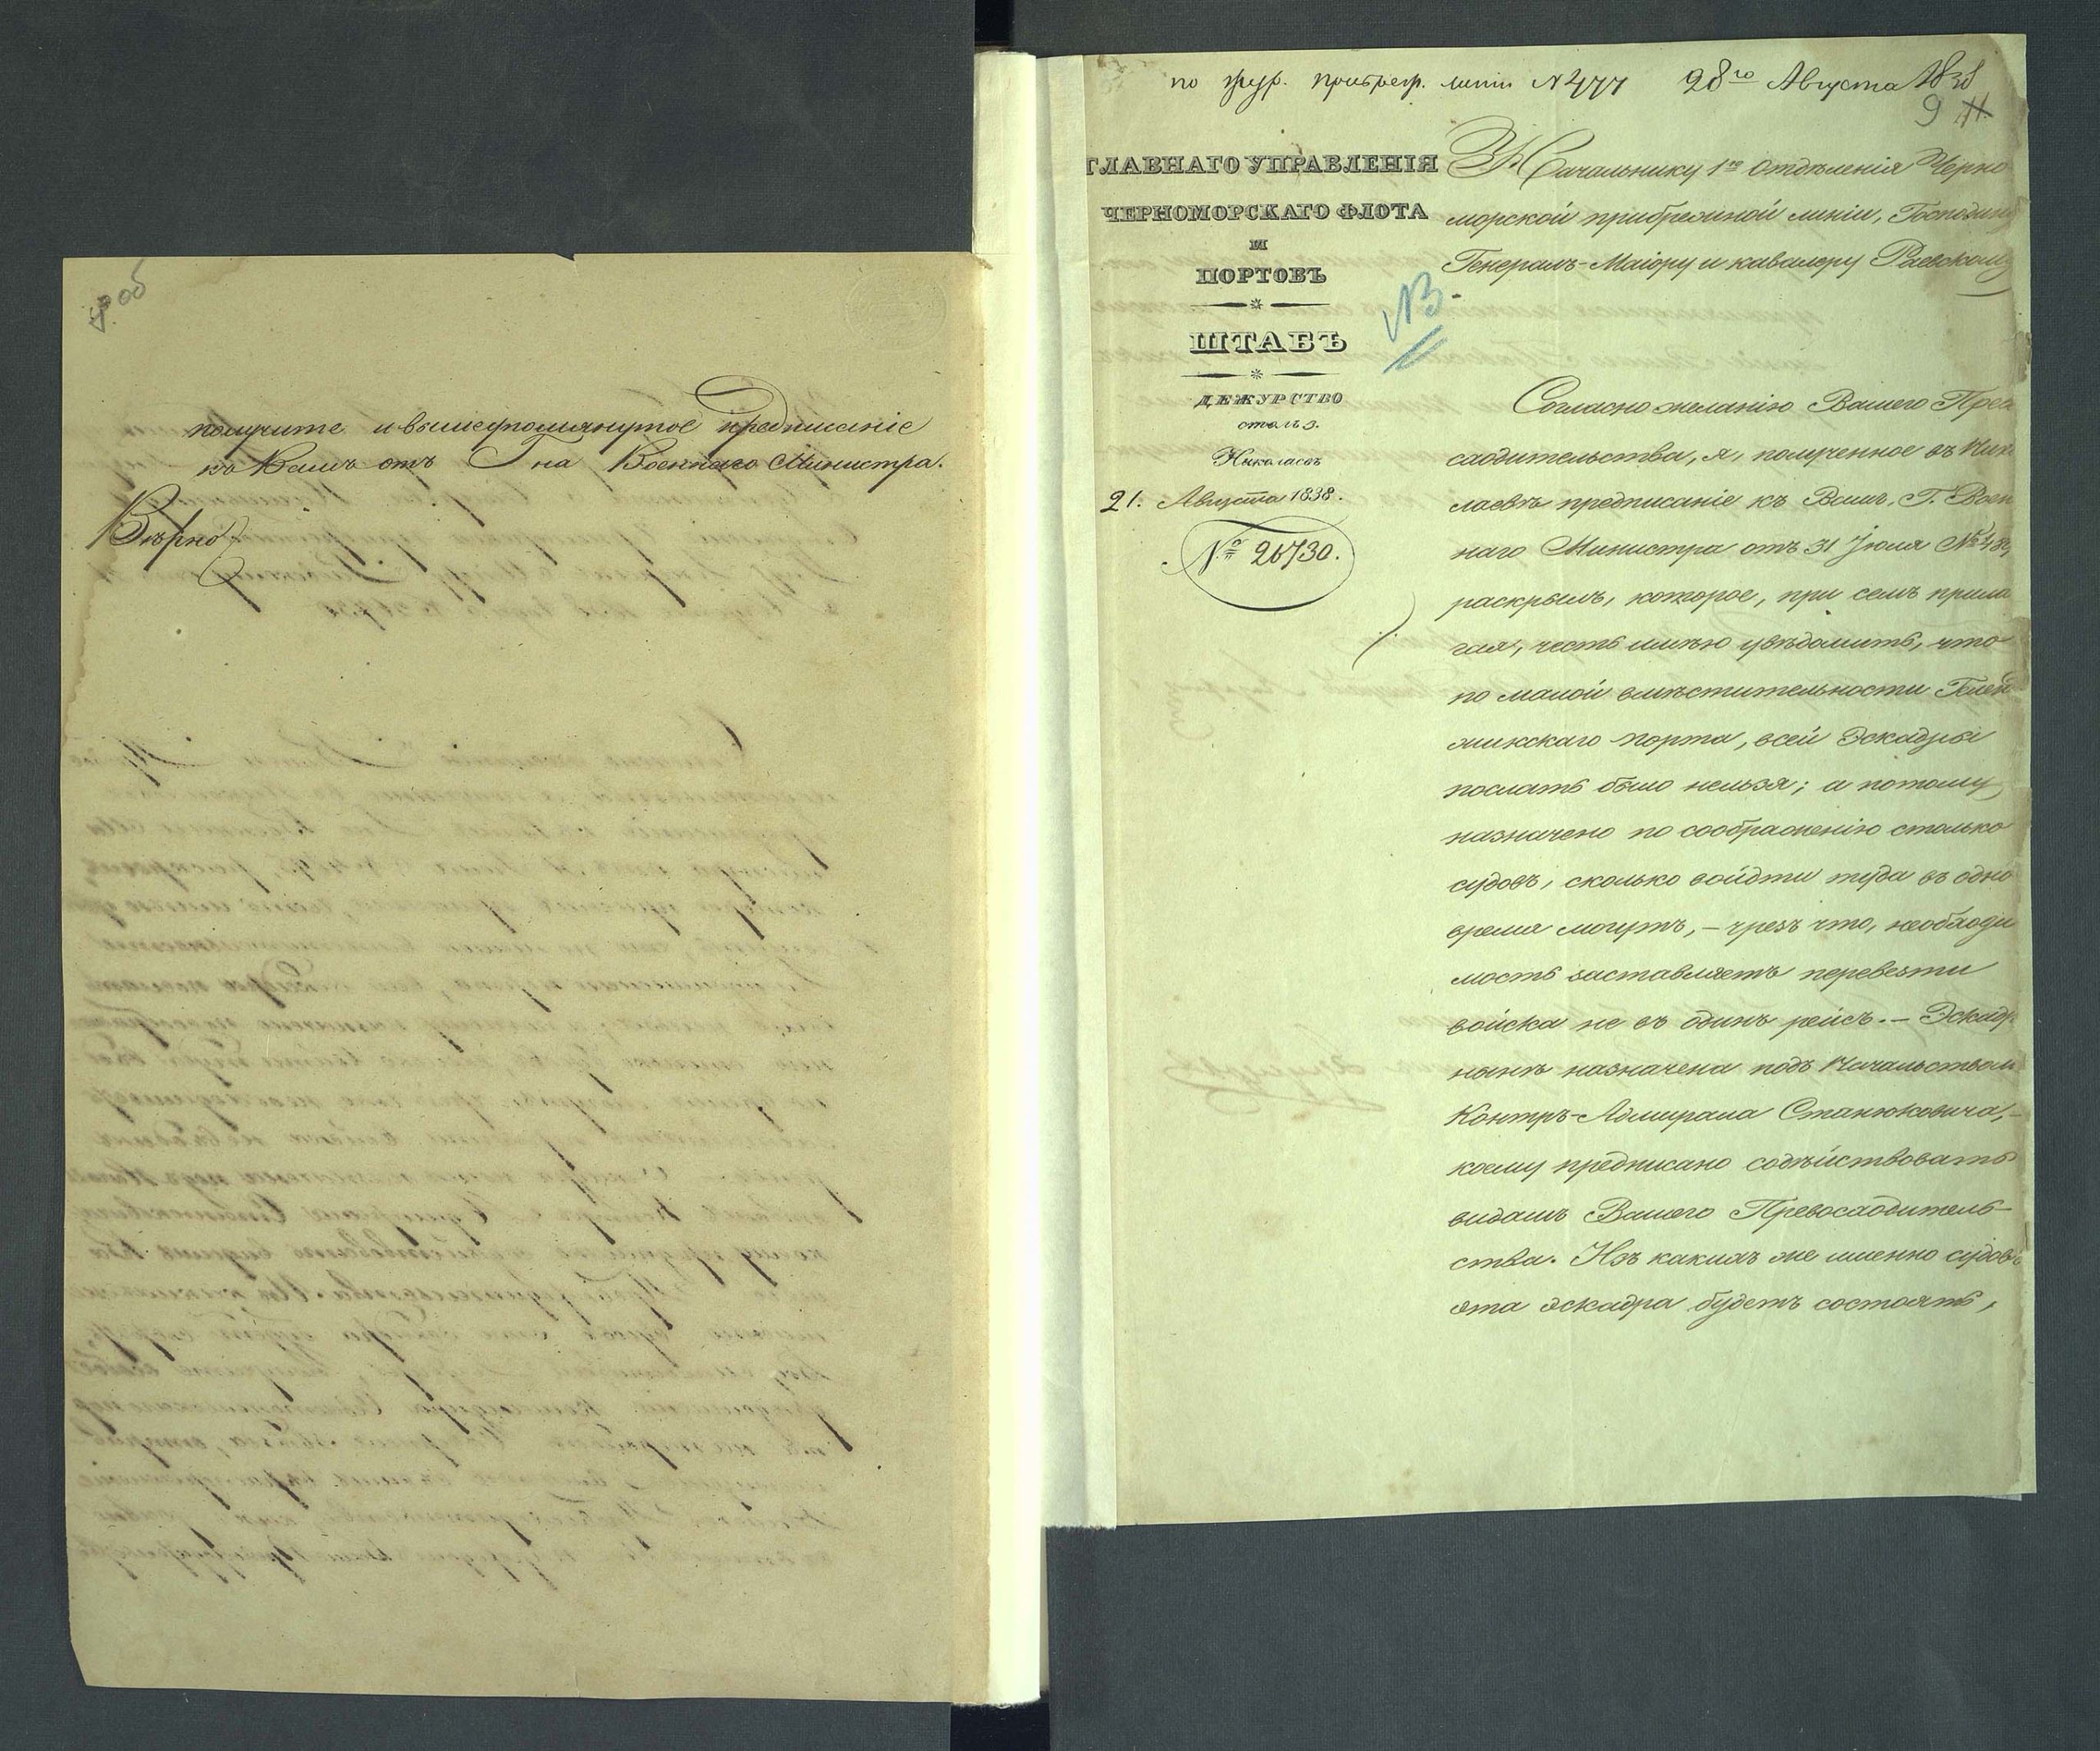 об
получите и вышеупомянутое предписаніе
къ Вамъ отъ Гна Военнаго Министра.
Вѣрно
по жур. прибреж. линіи № 477 28го Августа 1838
9
ГЛАВНАГО УПРАВЛЕНІЯ
ЧЕРНОМОРСКАГО ФЛОТА
И
ПОРТОВЪ
ШТАБЪ
ДЕЖУРСТВО
столъ 3.
Николаевъ
21. Августа 1838.
№ 26730.
NB
Начальнику 1го Отдѣленія Черно
морской прибрежной линіи, Господину
Генералъ-Маіору и кавалеру Раевскому
Согласно желанію Вашего Прев
сходительства, я, полученное въ Нико
лаевѣ предписаніе къ Вамъ, Г. Воен
наго Министра отъ 31 Іюля №
раскрылъ, которое, при семъ прила
гая, честь имѣю увѣдомить, что
по малой вмѣстительности Гелен
жикскаго порта, всей Эскадры
послать было нельзя; а потому
назначено по соображенію столько
судовъ, сколько войдти туда въ одно
время могутъ, – чрезъ что, необходи
мость заставляетъ перевезти
войска не въ одинъ рейсъ. – Эскадр
нынѣ назначена подъ Начальством
Контръ-Адмирала Станюковича, –
коему предписано содѣйствовать
видамъ Вашего Превосходитель-
ства. Изъ какихъ же именно судовъ
эта эскадра будетъ состоять,